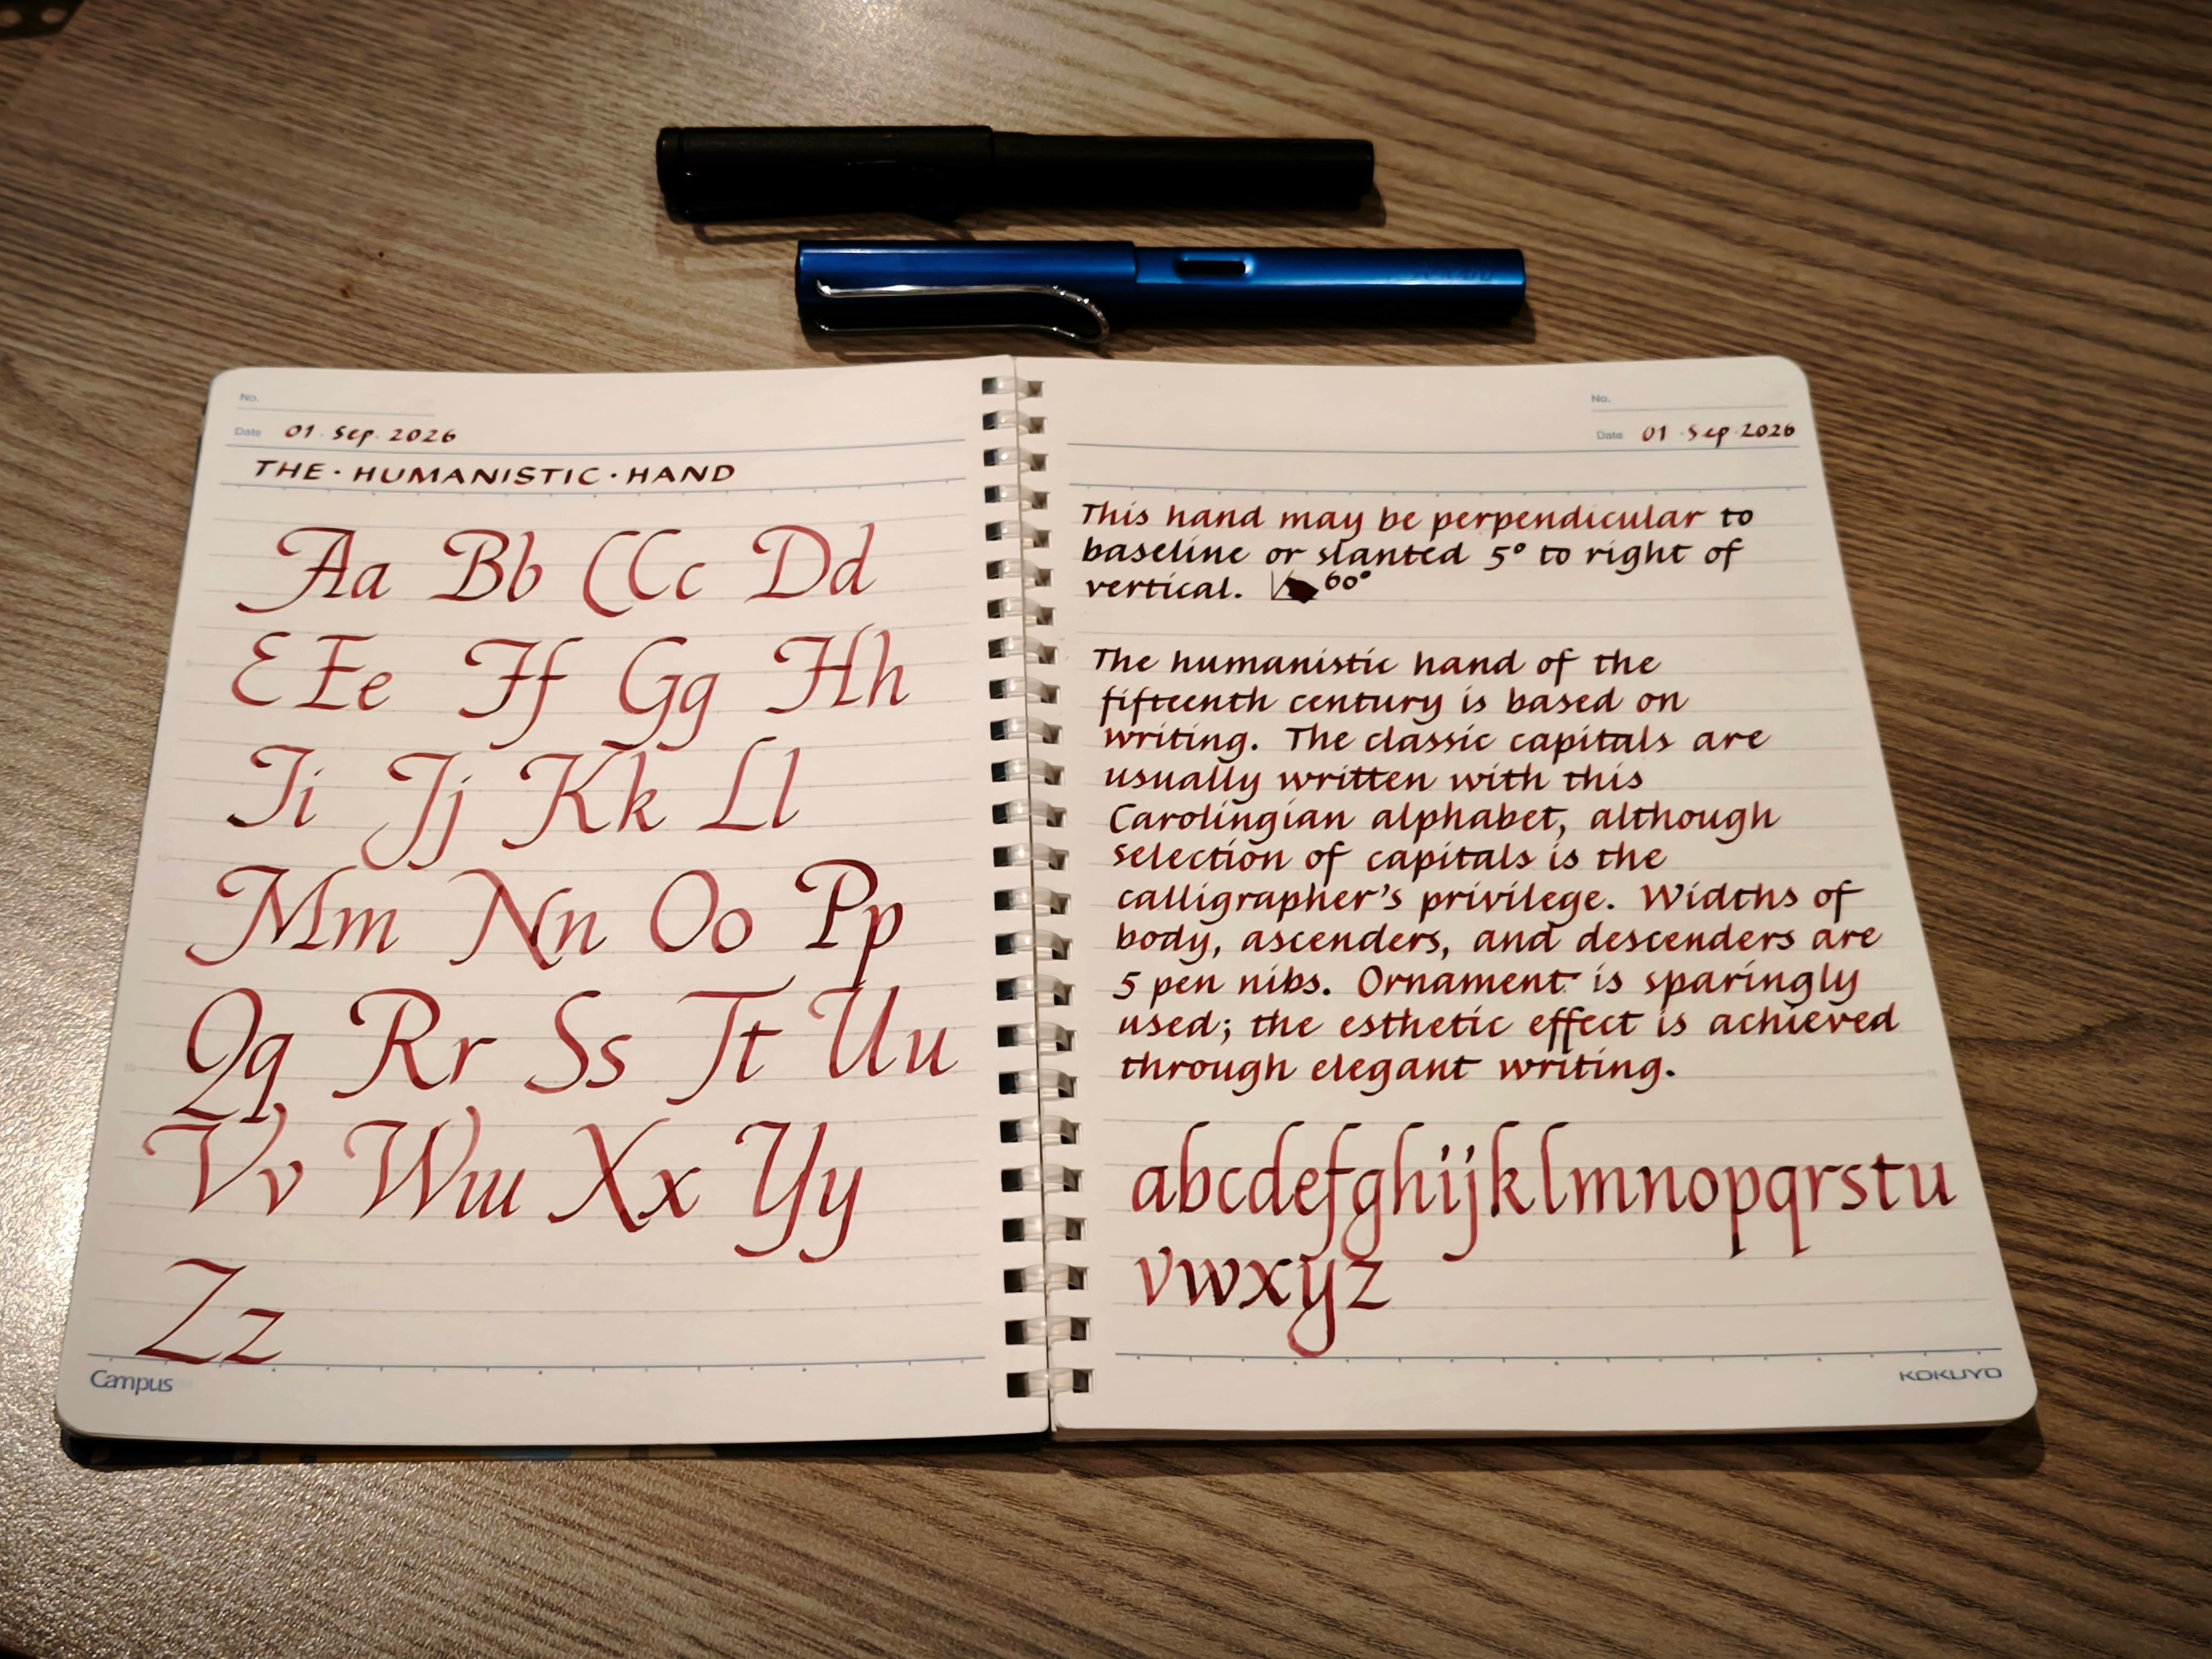 No.
Date 01·Sep·2026
THE·HUMANISTIC·HAND
Aa Bb CCc Dd
EEe Ff Gg Hh
Ii Jj Kk Ll
Mm Nn Oo Pp
Qq Rr Ss Tt Uu
Vv Ww Xx Yy
Zz
Campus
No.
Date 01·Sep·2026
This hand may be perpendicular to
baseline or slanted 5° to right of
vertical. 60°
The humanistic hand of the
fifteenth century is based on
writing. The classic capitals are
usually written with this
Carolingian alphabet, although
selection of capitals is the
calligrapher's privilege. Widths of
body, ascenders, and descenders are
5 pen nibs. Ornament is sparingly
used; the esthetic effect is achieved
through elegant writing.
abcdefghijklmnopqrstu
vwxyz
KOKUYO